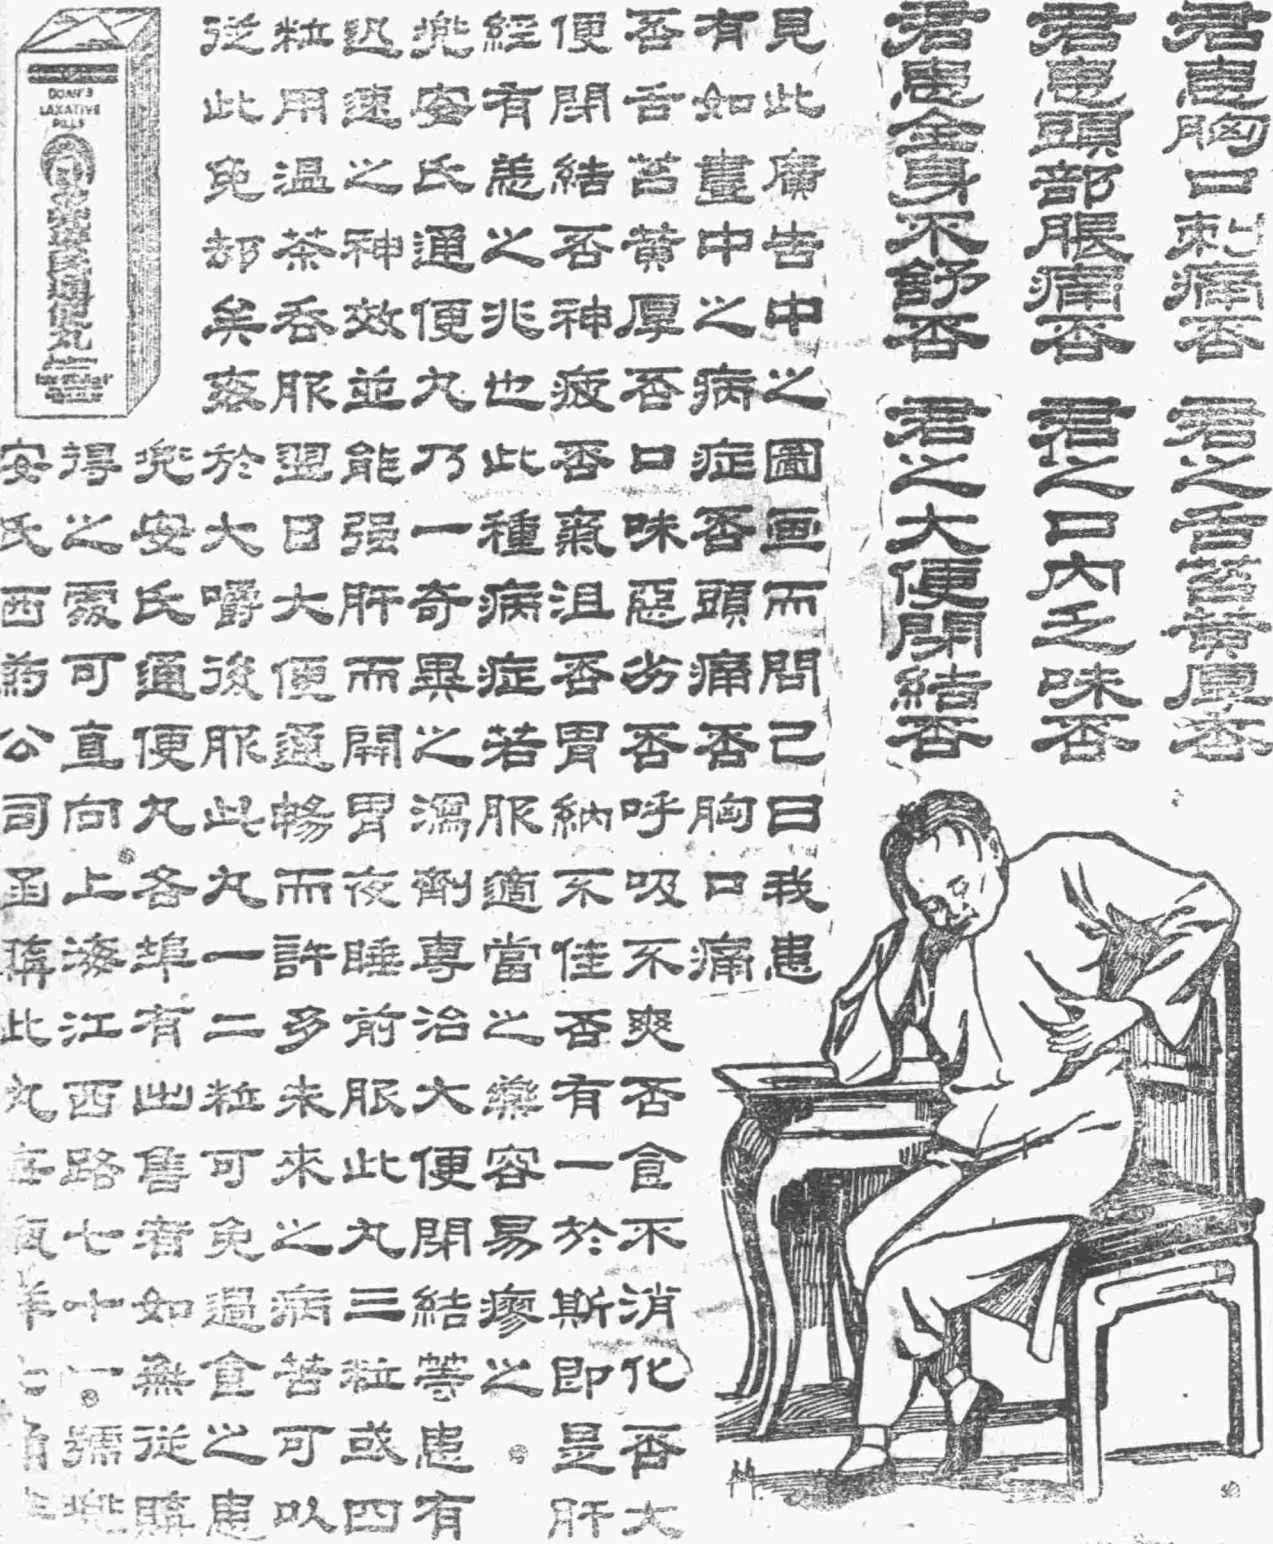 君患胸口刺痛否 君之舌苔黃厚否
君患頭部脹痛否 君之口內乏味否
君患全身不舒否 君之大便閉結否
見此廣告中之圖画而問己曰我患
有如畫中之病症否頭痛否胸口痛
否舌苔黃厚否口味惡劣否呼吸不爽否食不消化否大
便閉結否神疲否氣沮否胃納不佳否有一於斯即是肝
經有恙之兆也此種病症若服適當之藥容易瘳之。
兜安氏通便丸乃一奇異之瀉劑專治大便閉結等患有
迅速之神效並能强肝而開胃夜睡前服此丸三粒或四
粒用温茶吞服翌日大便通暢而許多未來之病苦可以
從此免却矣於大嚼後服此丸一二粒可免過食之患
兜安氏通便丸各埠有出售者如無從購
得之處可直向上海江西路七十一號兜
安氏西药公司函購此丸每瓶洋七角
DOAN'S
LAXATIVE
PILLS
兜安氏通便丸